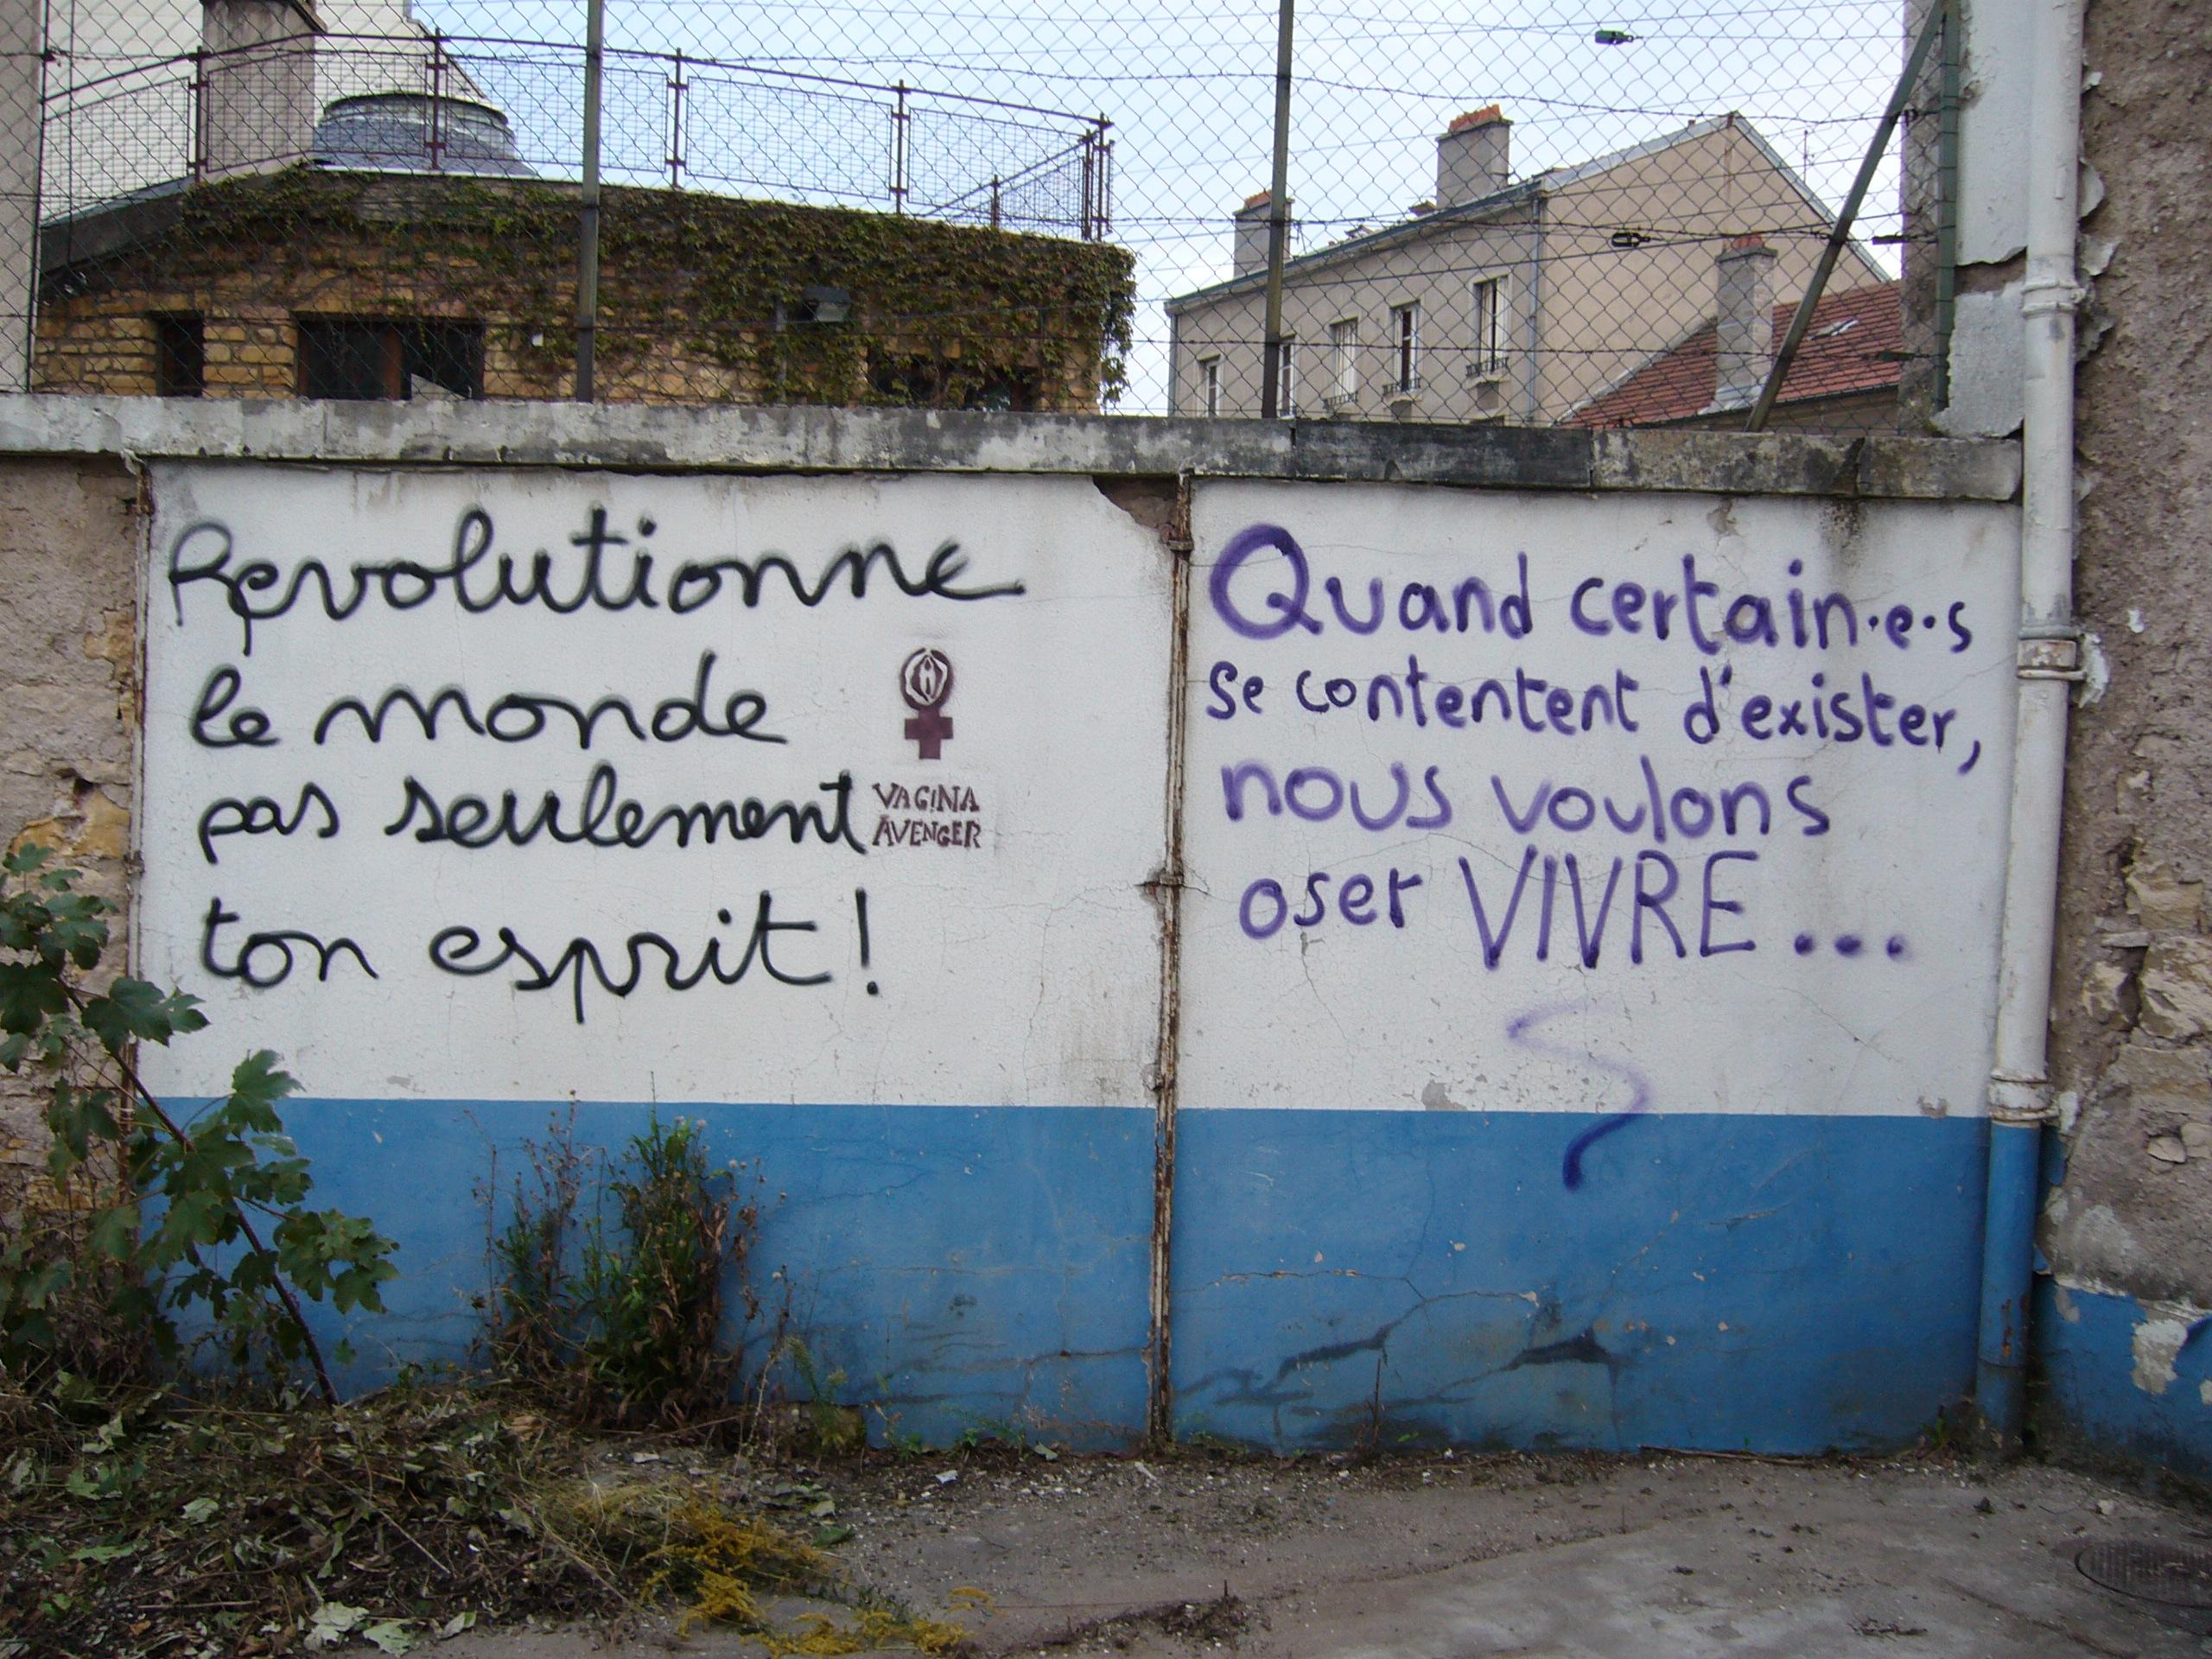 Revolutionne
le monde
pas seulement
ton esprit !
VAGINA
AVENGER
Quand certain·e·s
se contentent d'exister,
nous voulons
oser VIVRE...